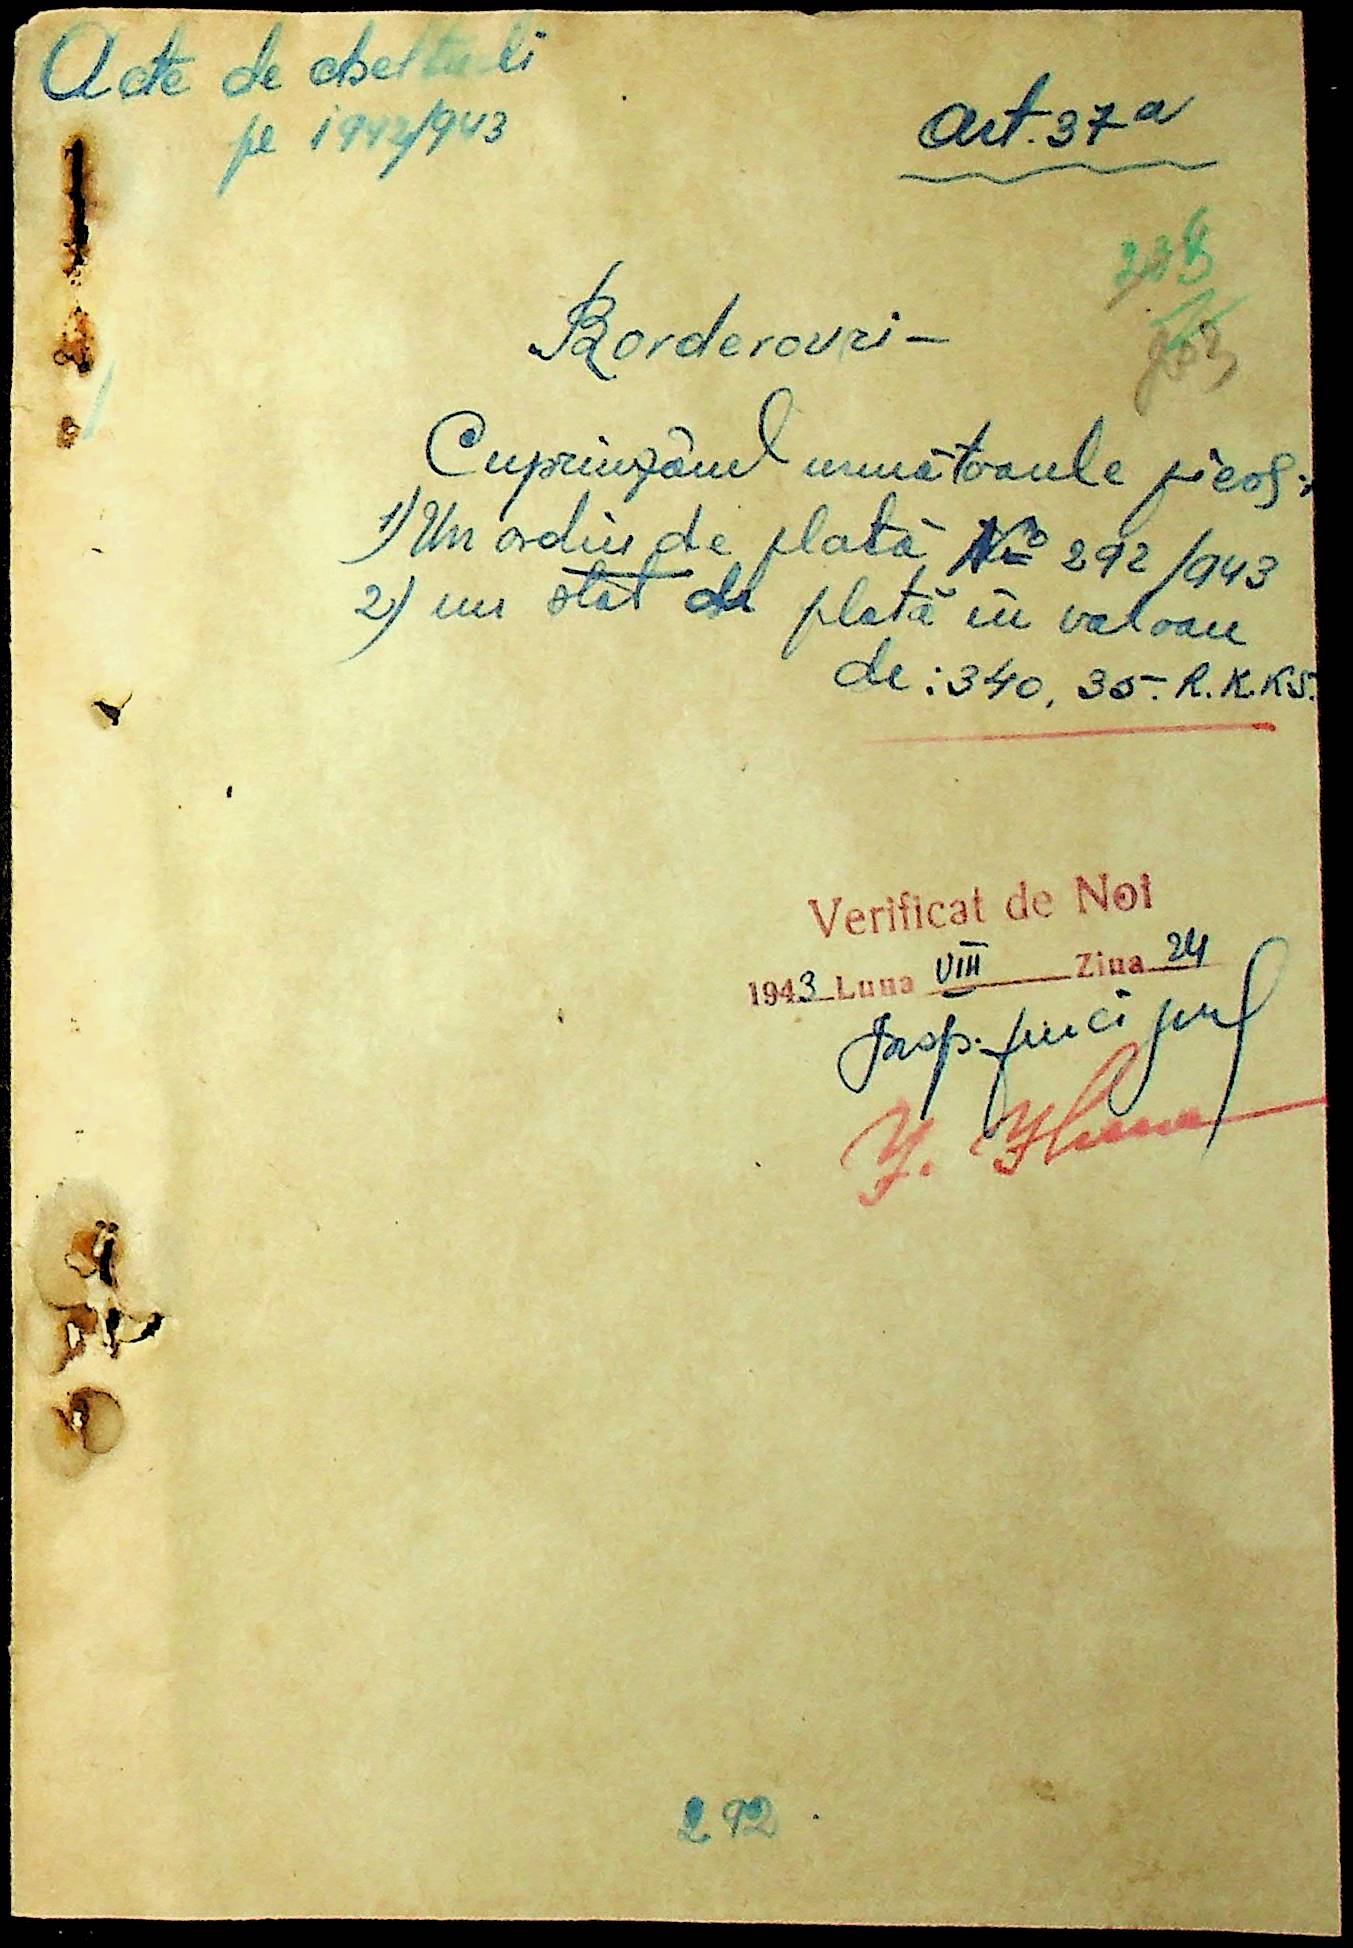 Acte de cheltueli
pe 1942/943
Art. 37 a
Borderouri -
Cuprinzând următoarele piese:
1) Un ordin de plată No 292/943
2) un stat de plată în valoare
de: 340,35.- R.K.K.S.
Verificat de Noi
1943 Luna VIII Ziua 24
Insp.
292